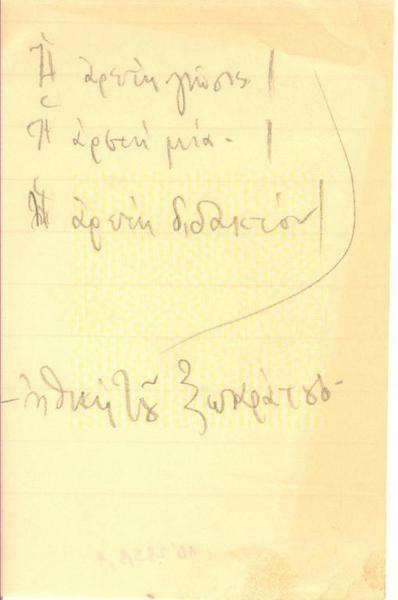 Ἡ ἀρετὴ γνῶσις
Ἡ ἀρετὴ μία -
Ἡ ἀρετὴ διδακτόν
- ἠθικὴ τοῦ Σωκράτους -